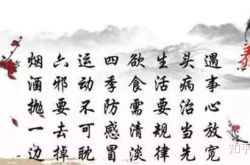 遇事心放宽
头病治当先
生活要规律
欲食需清淡
四季防感冒
运动不可耽
六邪要去掉
烟酒抛一边